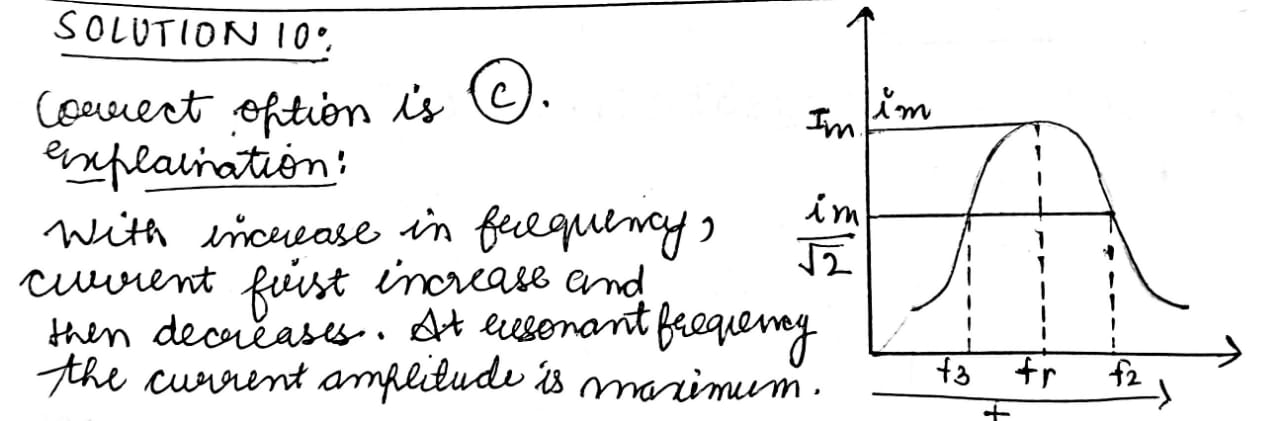 SOLUTION 10:
Correct option is (C).
explaination:
With increase in frequency,
current first increase and
then decreases. At resonant frequency
the current amplitude is maximum.
im
Im
im
√2
f3 fr f2
f